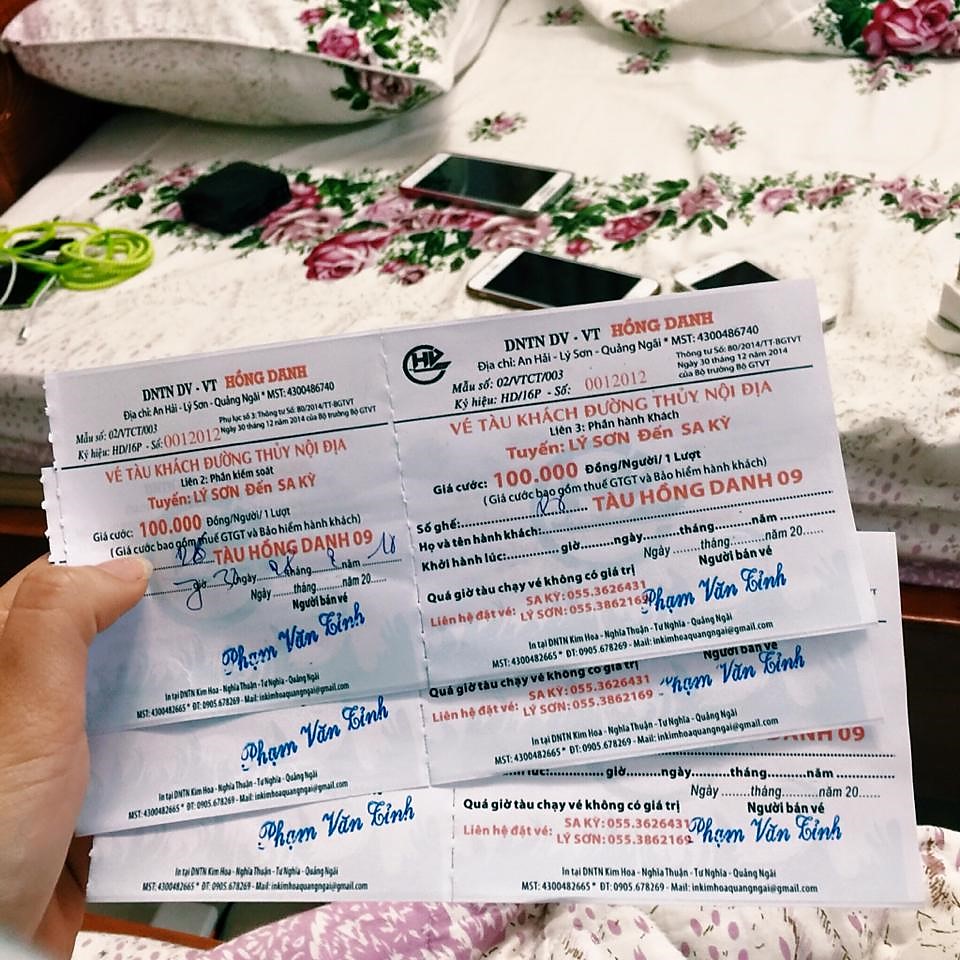 DNTN DV - VT HỒNG DANH
Địa chỉ: An Hải - Lý Sơn - Quảng Ngãi * MST: 4300486740
Mẫu số: 02/VTCT/003
Phụ lục số 3: Thông tư Số: 80/2014/TT-BGTVT
Ký hiệu: HD/16P - Số: 0012012
Ngày 30 tháng 12 năm 2014 của Bộ trưởng Bộ GTVT
VÉ TÀU KHÁCH ĐƯỜNG THỦY NỘI ĐỊA
Liên 2: Phần kiểm soát
Tuyến: LÝ SƠN Đến SA KỲ
Giá cước: 100.000 Đồng/Người/ 1 Lượt
(Giá cước bao gồm thuế GTGT và Bảo hiểm hành khách)
TÀU HỒNG DANH 09
giờ 30 ngày 28 tháng 8 năm
Ngày ........tháng........năm 20.....
Người bán vé
Phạm Văn Tỉnh
In tại DNTN Kim Hoa - Nghĩa Thuận - Tư Nghĩa - Quảng Ngãi
MST: 4300482665 * ĐT: 0905.678269 - Mail: inkimhoaquangngai@gmail.com
HD
DNTN DV - VT HỒNG DANH
Địa chỉ: An Hải - Lý Sơn - Quảng Ngãi * MST: 4300486740
Mẫu số: 02/VTCT/003
Ký hiệu: HD/16P - Số: 0012012
Thông tư Số: 80/2014/TT-BGTVT
Ngày 30 tháng 12 năm 2014
của Bộ trưởng Bộ GTVT
VÉ TÀU KHÁCH ĐƯỜNG THỦY NỘI ĐỊA
Liên 3: Phần hành Khách
Tuyến: LÝ SƠN Đến SA KỲ
Giá cước: 100.000 Đồng/Người/ 1 Lượt
( Giá cước bao gồm thuế GTGT và Bảo hiểm hành khách)
Số ghế: 28 TÀU HỒNG DANH 09
Họ và tên hành khách:
Khởi hành lúc:............ giờ........ngày.........tháng.........năm ............
Ngày .......tháng........năm 20......
Quá giờ tàu chạy vé không có giá trị
Người bán vé
Liên hệ đặt vé: SA KỲ: 055.3626431
LÝ SƠN: 055.3862169
Phạm Văn Tỉnh
In tại DNTN Kim Hoa - Nghĩa Thuận - Tư Nghĩa - Quảng Ngãi
MST: 4300482665 * ĐT: 0905.678269 - Mail: inkimhoaquangngai@gmail.com
Phạm Văn Tỉnh
In tại DNTN Kim Hoa - Nghĩa Thuận - Tư Nghĩa - Quảng Ngãi
MST: 4300482665 * ĐT: 0905.678269 - Mail: inkimhoaquangngai@gmail.com
Quá giờ tàu chạy vé không có giá trị
Người bán vé
Liên hệ đặt vé: SA KỲ: 055.3626431
LÝ SƠN: 055.3862169
Phạm Văn Tỉnh
In tại DNTN Kim Hoa - Nghĩa Thuận - Tư Nghĩa - Quảng Ngãi
MST: 4300482665 * ĐT: 0905.678269 - Mail: inkimhoaquangngai@gmail.com
Phạm Văn Tỉnh
In tại DNTN Kim Hoa - Nghĩa Thuận - Tư Nghĩa - Quảng Ngãi
MST: 4300482665 * ĐT: 0905.678269 - Mail: inkimhoaquangngai@gmail.com
DANH 09
lúc:............ giờ........ngày.........tháng.........năm ............
Ngày .......tháng........năm 20......
Quá giờ tàu chạy vé không có giá trị
Người bán vé
Liên hệ đặt vé: SA KỲ: 055.3626431
LÝ SƠN: 055.3862169
Phạm Văn Tỉnh
In tại DNTN Kim Hoa - Nghĩa Thuận - Tư Nghĩa - Quảng Ngãi
MST: 4300482665 * ĐT: 0905.678269 - Mail: inkimhoaquangngai@gmail.com